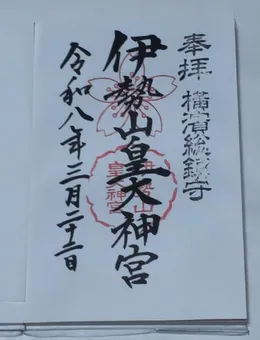 奉拝 横濱総鎮守
伊勢山皇大神宮
令和八年三月二十二日
伊勢山
皇大神宮